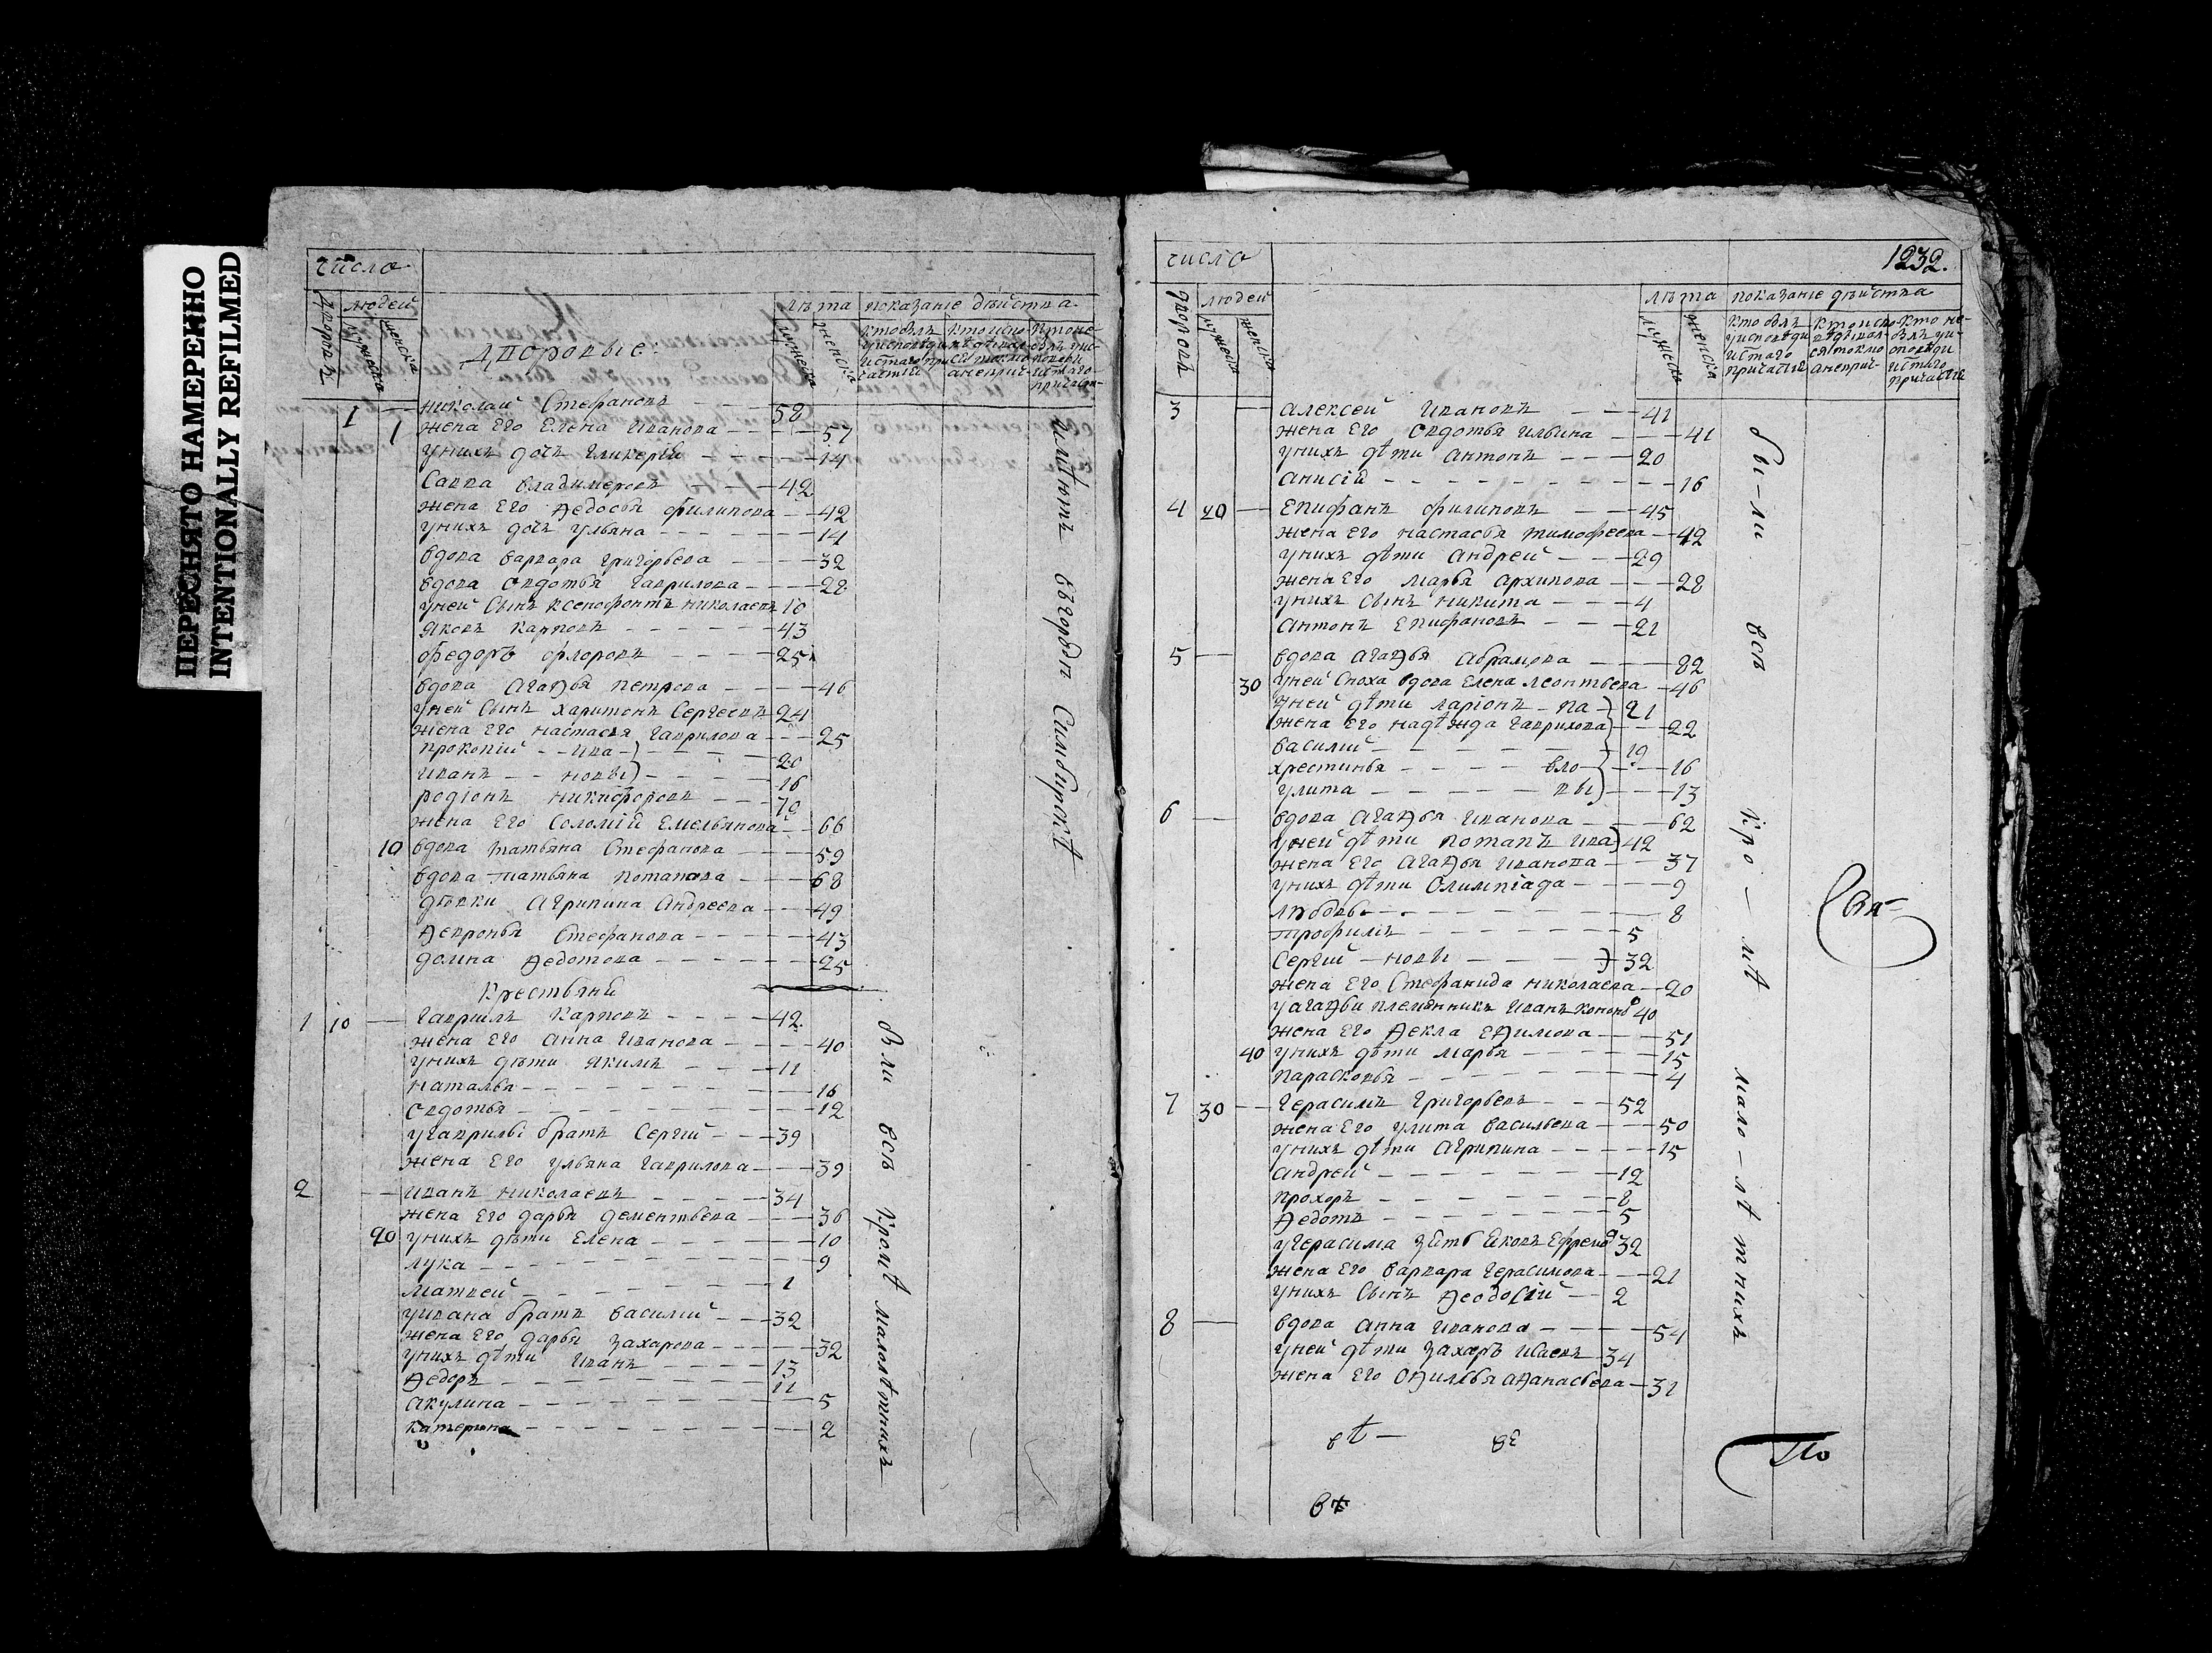 ПЕРЕСНЯТО НАМЕРЕННО
INTENTIONALLY REFILMED
число
людей
дворовъ
мужеска
женска
лѣта
мужеска
женска
показание дѣиства
дворовые:
1 николай Стефановъ 58
1 жена Его Елена Иванова 57
унихъ дочь гликерія 14
Савва владимеровъ 42
жена Его Ѳедосья филипова 42
унихъ дочь ульяна 14
вдова варвара григорьева 32
вдова овдотья гаврилова 28
уней Сынъ ксенофонтъ николаевъ 10
яковъ карповъ 43
федоръ флоровъ 25
вдова агаѳья петрова 46
уней Сынъ харитонъ Сергеевъ 24
жена Его настасья гаврилова 25
прокопий - ива- 20
иванъ - новы 16
родіонъ никифоровъ 70
жена Его Соломія Емельянова 66
10 вдова татьяна Стефанова 59
вдова татьяна потапова 68
дѣвки агрипина андреева 49
Ѳевронья Стефанова 43
домна Ѳедотова 25
крестьяня
1 10 гаврилъ карповъ 42
жена Его анна иванова 40
унихъ дѣти якимъ 11
наталья 16
овдотья 12
угаврилы братъ Сергий 39
жена Его ульяна гаврилова 39
2 иванъ николаевъ 34
жена Его дарья дементьева 36
20 унихъ дѣти Елена 10
лука 9
матвей 1
уивана братъ василий 32
жена Его дарья захарова 32
унихъ дѣти иванъ 13
Ѳедоръ 11
акулина 5
катерина 2
были всѣ кромѣ малолѣтнихъ
вгородѣ Симбирскѣ
1232.
число
людей
дворовъ
мужеска
женска
лѣта
мужеска
женска
показание дѣиства
3 алексей ивановъ 41
жена Его овдотья ильина 41
унихъ дѣти антонъ 20
анисія 16
4 20 Епифанъ филиповъ 45
жена Его настасья тимофеева 42
унихъ дѣти андрей 29
жена Его марья архипова 28
унихъ Сынъ никита 4
антонъ Епифановъ 21
5 вдова агаѳья абрамова 82
30 уней Сноха вдова Елена леонтьева 46
уней дѣти ларіонъ - па- 21
жена Его надѣжда гаврилова 22
василий 19
хрестинья вло- 16
улита вы 13
6 вдова агаѳья иванова 62
уней дѣти потапъ ива 42
жена Его агаѳья иванова 37
унихъ дѣти олимпіада 9
любовь 8
трофимъ 5
Сергий - новы 32
жена Его Стефанида николаева 20
уагаѳьи племянникъ иванъ кононо 40
жена Его Ѳекла Еѳимова 51
40 унихъ дѣти марья 15
парасковья 4
7 30 герасимъ григорьевъ 52
жена Его улита васильева 50
унихъ дѣти агрипина 15
андрей 12
прохоръ 8
Ѳедотъ 5
угерасима зять яковъ Ефремо 32
жена Его варвара герасимова 21
унихъ Сынъ Ѳеодосій 2
8 вдова анна иванова 54
уней дѣти захаръ исаевъ 34
жена Его Оѳимья аѳанасьева 31
бы-ли всѣ кро-мѣ мало-лѣтнихъ
По